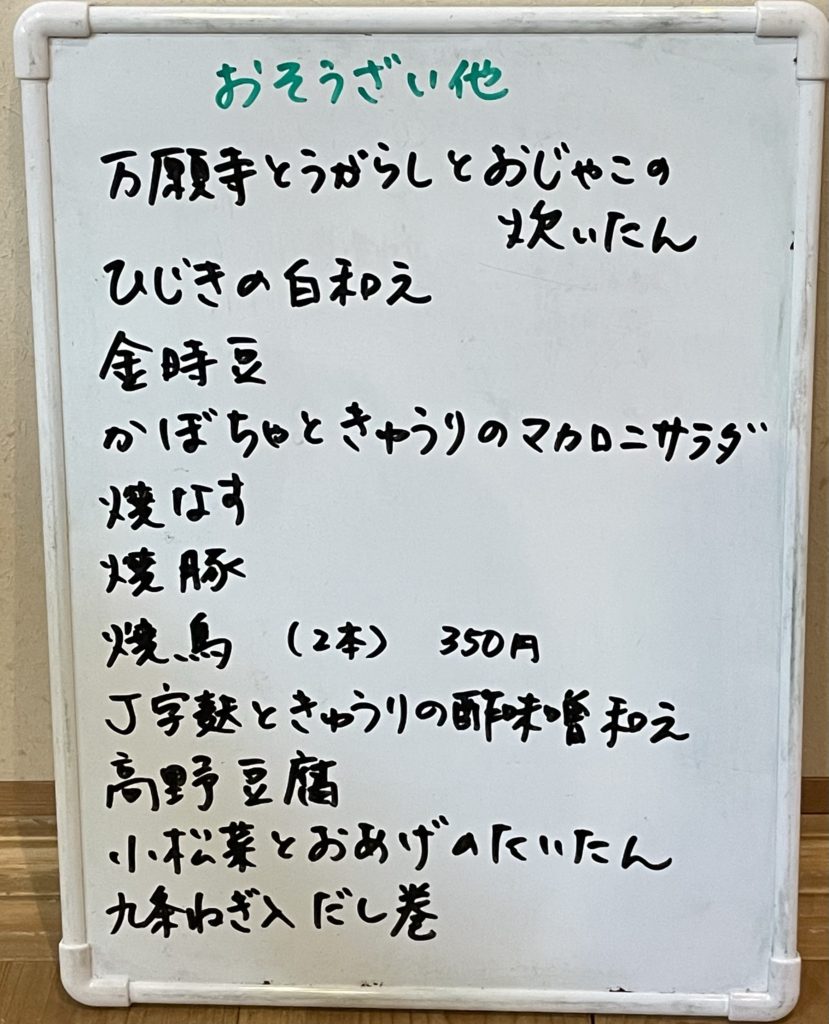 おそうざい他
万願寺とうがらしとおじゃこの
炊いたん
ひじきの白和え
金時豆
かぼちゃときゅうりのマカロニサラダ
焼なす
焼豚
焼鳥 (2本) 350円
J字麩ときゅうりの酢味噌和え
高野豆腐
小松菜とおあげのたいたん
九条ねぎ入だし巻